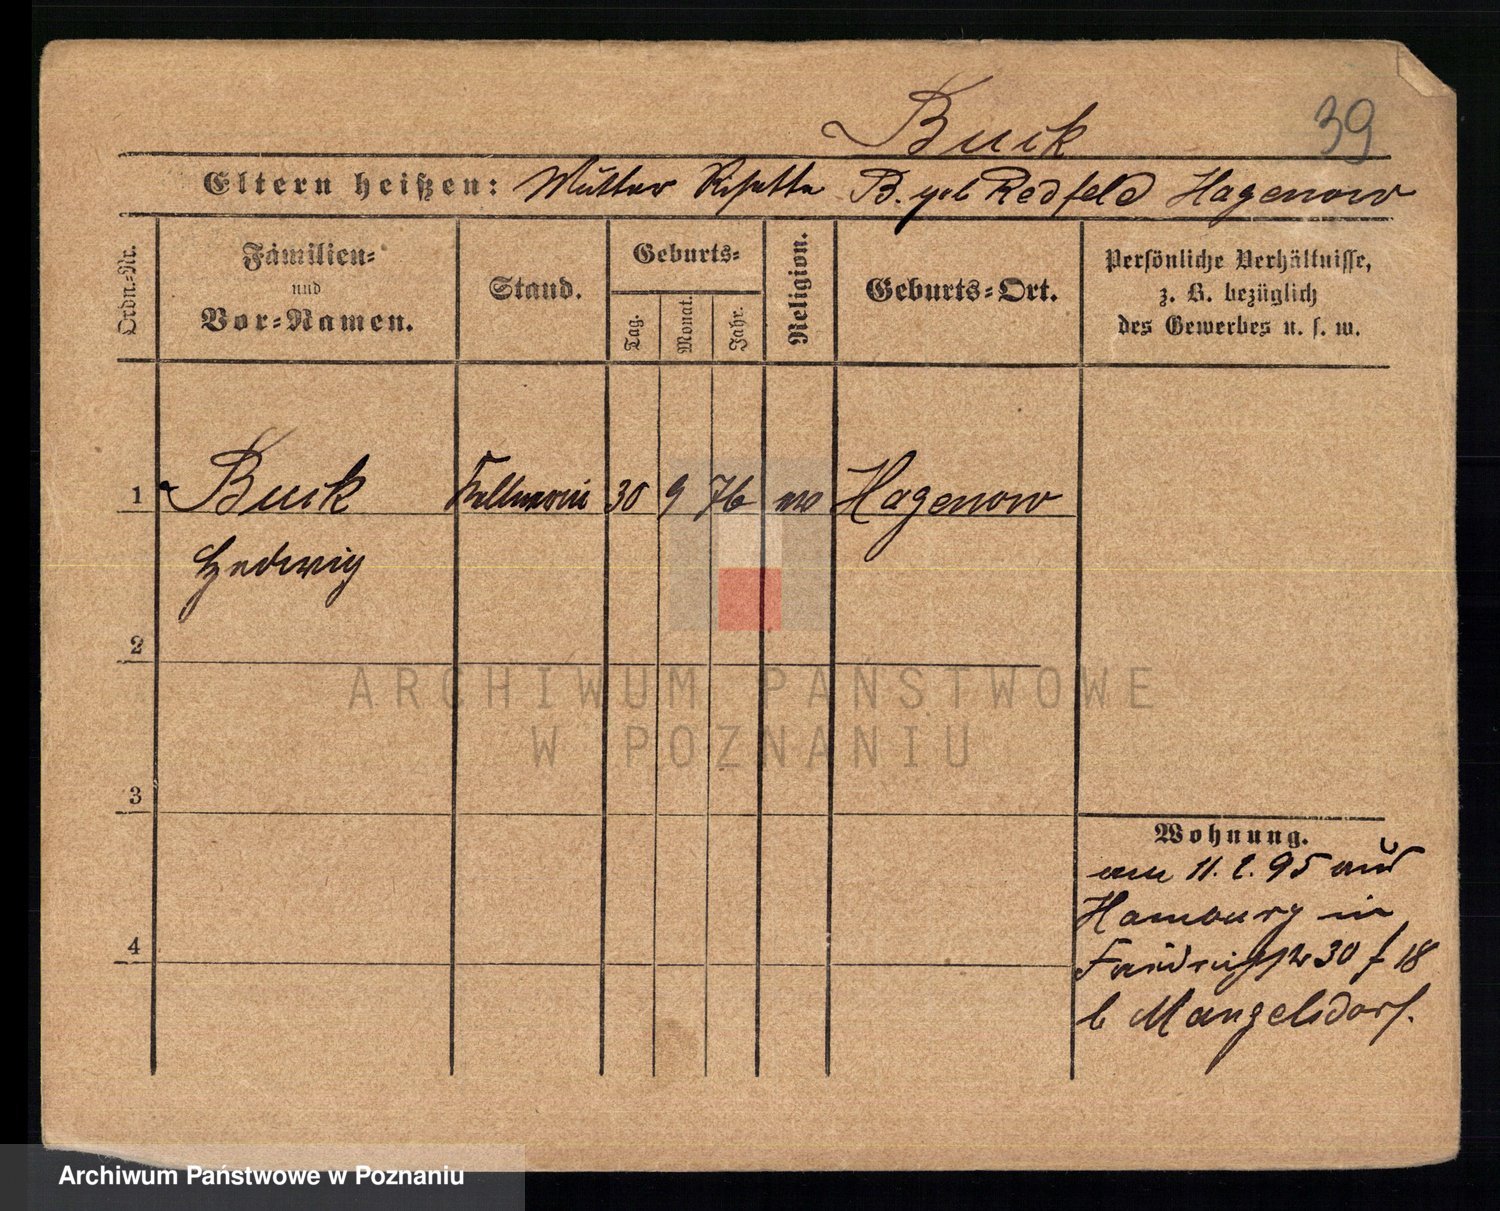 Buck
39
Eltern heißen: Mutter B. geb Redfeld Hagenow
Ordn.-Nr.
Familien-
und
Vor-Namen.
Stand.
Geburts-
Tag.
Monat.
Jahr.
Religion.
Geburts-Ort.
Persönliche Verhältnisse,
z. B. bezüglich
des Gewerbes u. s. w.
1 Buck Kellnerin 30 9 76 ev Hagenow
Hedwig
2
3
4
Wohnung.
am 11. 2. 95 aus
Hamburg in
30 18
b Mangelsdorf.
ARCHIWUM PAŃSTWOWE
W POZNANIU
Archiwum Państwowe w Poznaniu